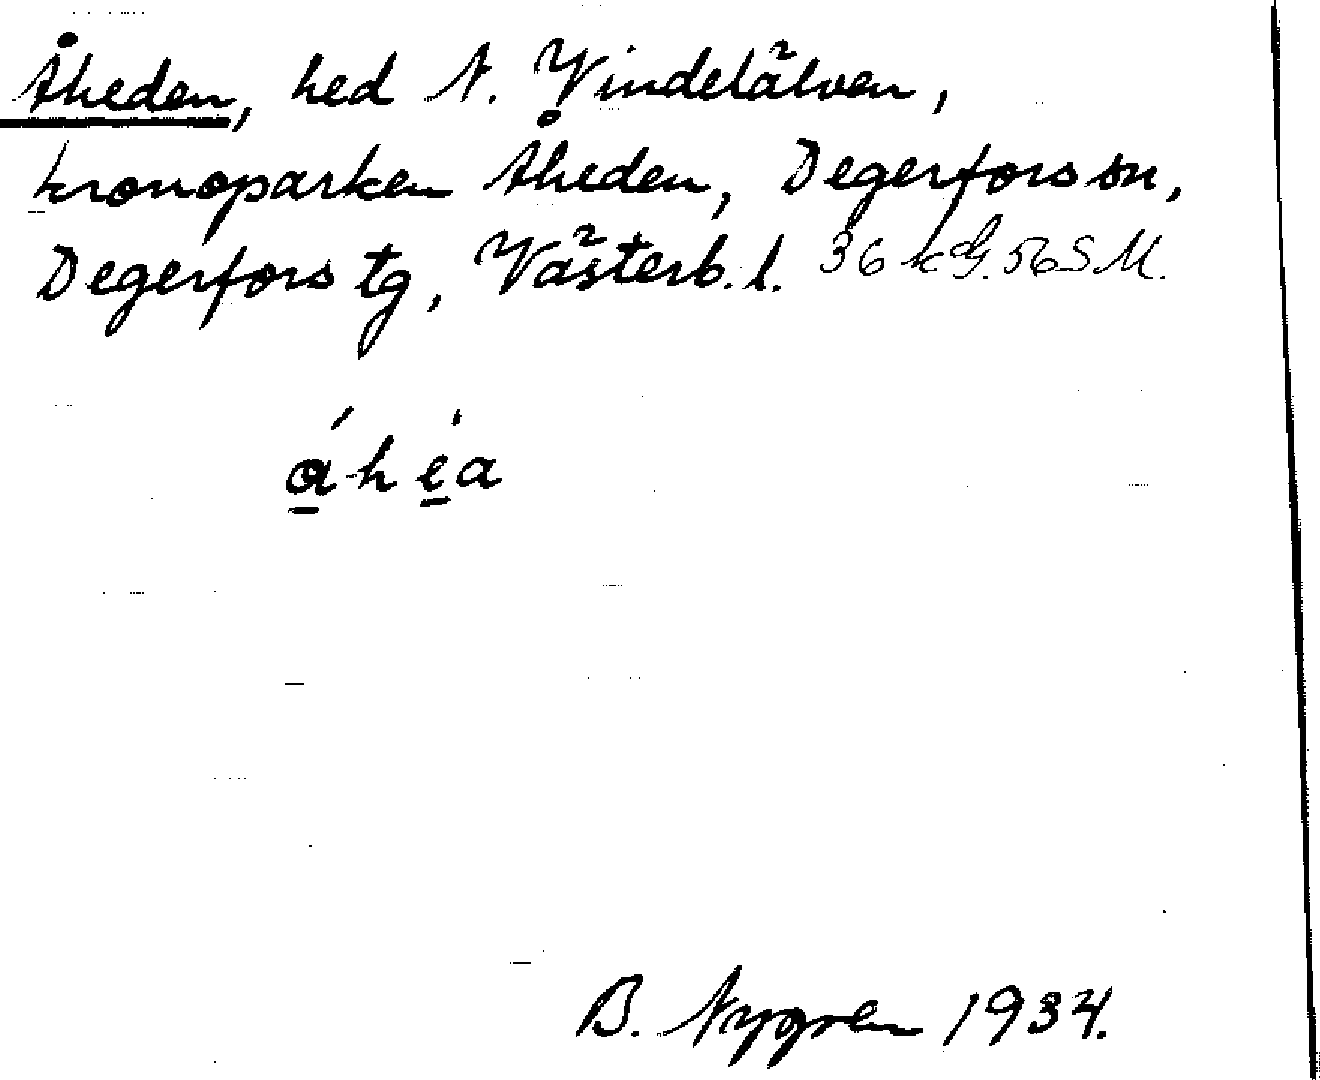 Åheden, hed N. Vindelälven,
kronoparken Åheden, Degerfors sn,
Degerfors tg, Västerb. l. 36 kG. 56 S M.
á-h é a
B. Nygren 1934.